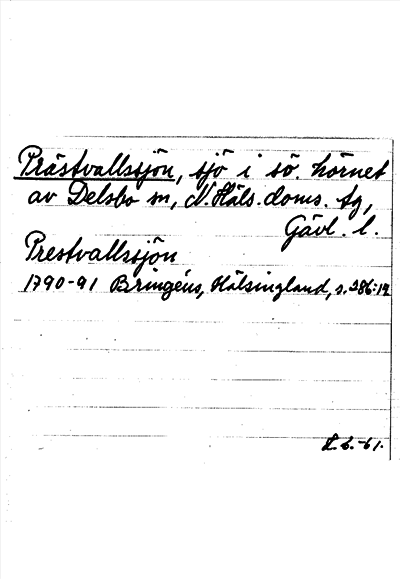 Prästvallssjön, sjö i sö. hörnet
av Delsbo sn, N. Häls. doms. tg,
Gävl. l.
Prestvallssjön
1790-91 Bringéus, Hälsingland, s. 286:19
L.b.-61.